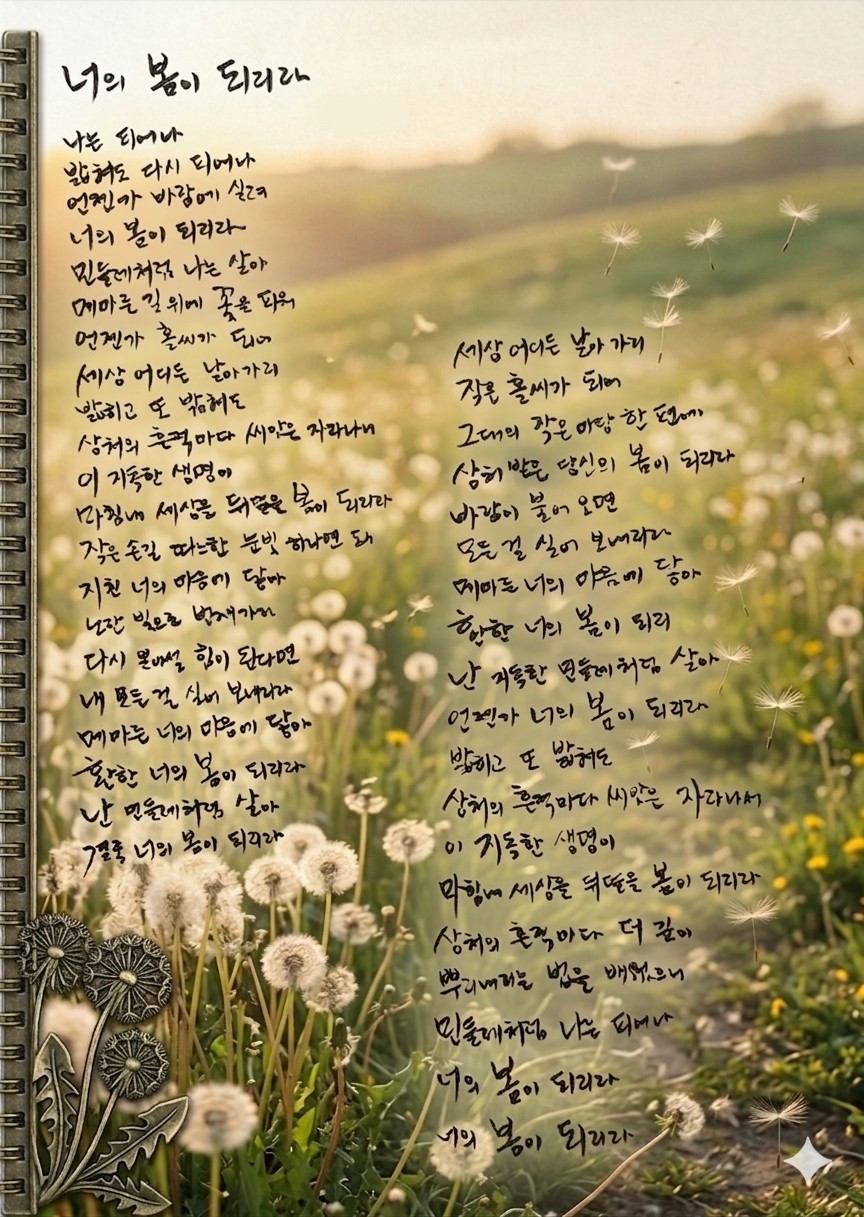 너의 봄이 되리라
나는 피어나
밟혀도 다시 피어나
언젠가 바람에 실려
너의 봄이 되리라
민들레처럼 나는 살아
메마른 길 위에 꽃을 피워
언젠가 홀씨가 되어
세상 어디든 날아가리
밟히고 또 밟혀도
상처의 흔적마다 씨앗은 자라나니
이 지독한 생명이
마침내 세상을 뒤덮을 봄이 되리라
작은 손길 따스한 눈빛 하나면 돼
지친 너의 마음에 닿아
노란 빛으로 번져가리
다시 일어설 힘이 된다면
내 모든 걸 실어 보내리라
메마른 너의 마음에 닿아
환한 너의 봄이 되리라
난 민들레처럼 살아
결국 너의 봄이 되리라
세상 어디든 날아가리
작은 홀씨가 되어
그대의 작은 마당 한 편에
상처받은 당신의 봄이 되리라
바람이 불어 오면
모든 걸 실어 보내리라
메마른 너의 마음에 닿아
환한 너의 봄이 되리
난 지독한 민들레처럼 살아
언젠가 너의 봄이 되리라
밟히고 또 밟혀도
상처의 흔적마다 씨앗은 자라나서
이 지독한 생명이
마침내 세상을 뒤덮을 봄이 되리라
상처의 흔적마다 더 깊이
뿌리내리는 법을 배웠으니
민들레처럼 나는 피어나
너의 봄이 되리라
너의 봄이 되리라